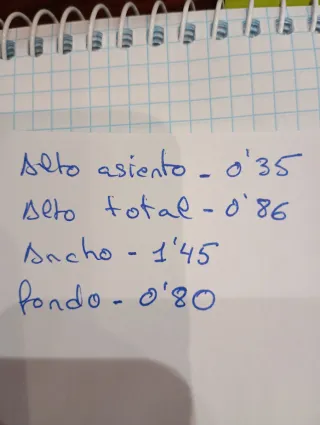 Alto asiento - 0'35
Alto total - 0'86
Ancho - 1'45
fondo - 0'80